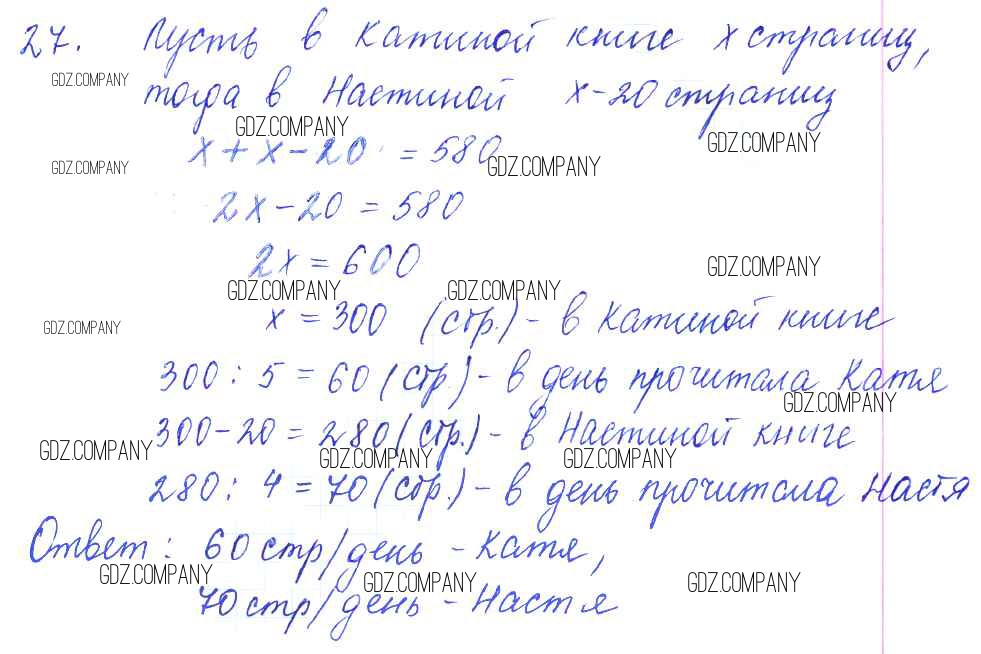 27. Пусть в Катиной книге x страниц,
GDZ.COMPANY
тогда в Настиной x-20 страниц
GDZ.COMPANY
GDZ.COMPANY
x + x - 20 = 580
GDZ.COMPANY
GDZ.COMPANY
2x - 20 = 580
2x = 600
GDZ.COMPANY
GDZ.COMPANY
GDZ.COMPANY
x = 300 (стр.) - в Катиной книге
GDZ.COMPANY
300 : 5 = 60 (стр.) - в день прочитала Катя
GDZ.COMPANY
300 - 20 = 280 (стр.) - в Настиной книге
GDZ.COMPANY
GDZ.COMPANY
GDZ.COMPANY
280 : 4 = 70 (стр.) - в день прочитала Настя
Ответ: 60 стр/день - Катя,
GDZ.COMPANY
GDZ.COMPANY
GDZ.COMPANY
70 стр/день - Настя